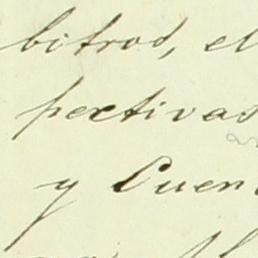 bitrod, el
pectivas
y Cuen